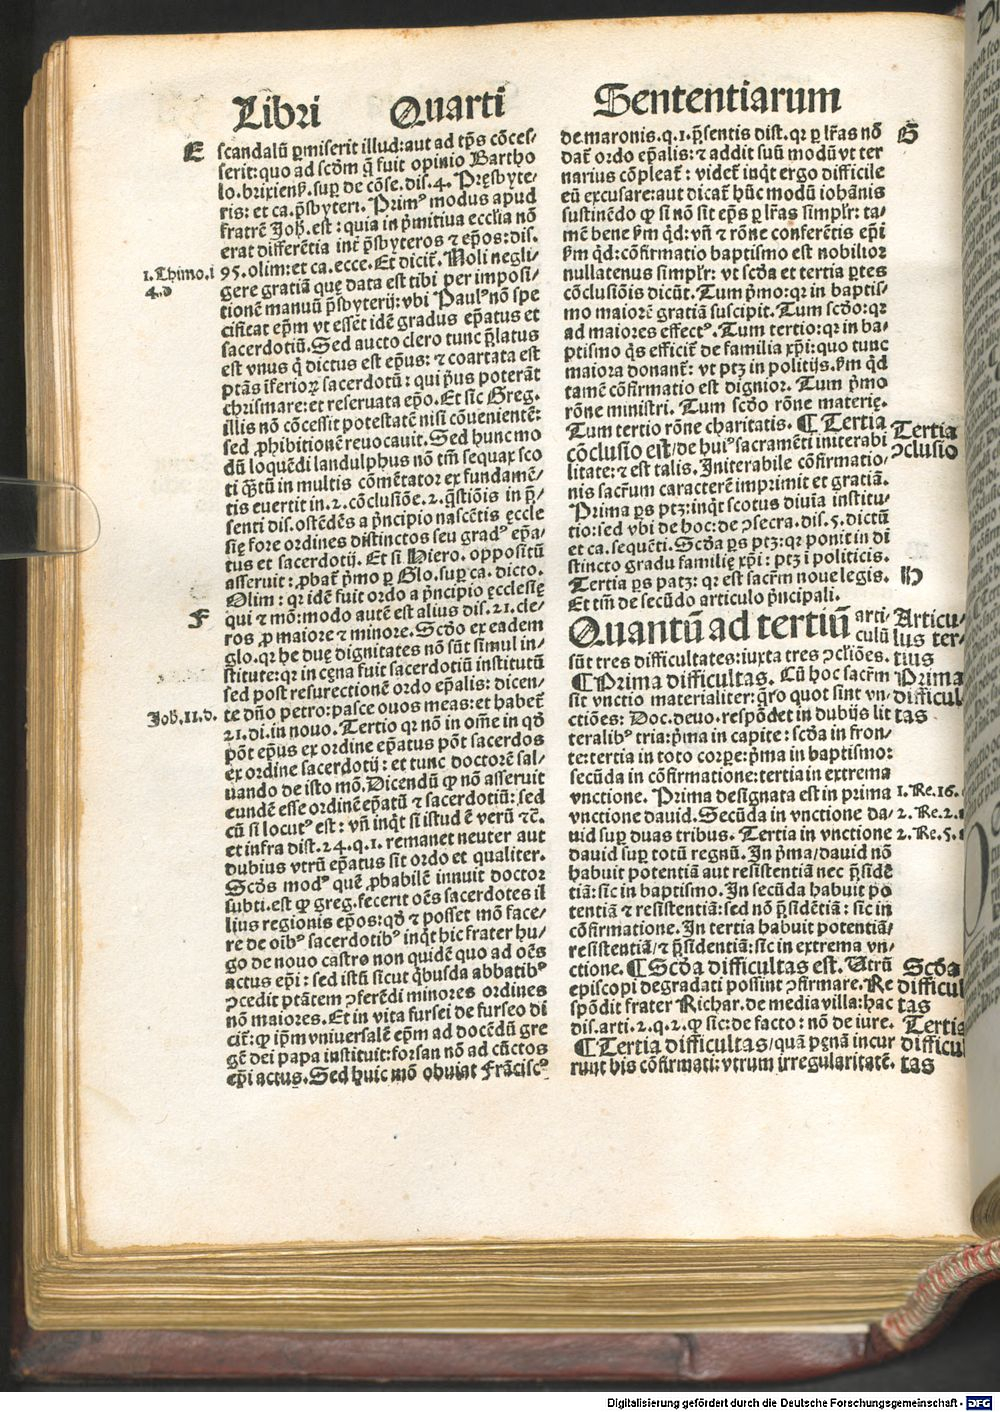 Libri Quarti Sententiarum
E
scandalū ꝑmiserit illud: aut ad tp̄s cōces-
serit: quo ad scd̄m q̄ fuit opinio Bartho
lo. brixienẜ. suꝑ de cōse. dis. 4. Pręsbyte-
ris: et ca. p̄sbyteri. Primꝰ modus apud
fratrē Joh̄. est: quia in p̄mitiua eccl̄ia nō
erat differētia int̄ p̄sbyteros ⁊ ep̄os: dis.
1. Thimo. i
4. d
95. olim: et ca. ecce. Et dicit̄. Noli negli-
gere gratiā quę data est tibi per imposi-
tionē manuū p̄sbyterij: vbi Paulꝰ nō spe
cificat ep̄m vt esset idē gradus ep̄atus et
sacerdotiū. Sed aucto clero tunc p̄latus
est vnus q̄ dictus est ep̄us: ⁊ coartata est
ptās īferioꝝ sacerdotū: qui p̄us poterāt
chrismare: et reseruata ep̄o. Et sic Greg.
illis nō cōcessit potestatē nisi cōuenientē:
sed ꝓhibitionē reuocauit. Sed hunc mo
dū loquēdi landulphus nō tm̄ sequax sco
ti q̄ꝫtū in multis cōmētator ex fundamē-
tis euertit in. 2. cōclusiōe. 2. q̄stiōis in p̄-
senti dis. ostēdēs a p̄ncipio nascētis ęccle
się fore ordines distinctos seu gradꝰ ep̄a-
tus et sacerdotij. Et si Hiero. oppositū
asseruit: ꝓbat̄ p̄mo ꝑ Glo. suꝑ ca. dicto.
Olim: qꝛ idē fuit ordo a p̄ncipio ęcclesię
F
qui ⁊ mō: modo autē est alius dis. 21. cle-
ros ꝓ maiore ⁊ minore. Scd̄o ex eadem
glo. qꝛ he duę dignitates nō sūt simul in-
stitute: qꝛ in cęna fuit sacerdotiū institutū
sed post resurectionē ordo ep̄alis: dicen-
Joh̄. 11. d.
te dn̄o petro: pasce oues meas: et habet̄
21. di. in nouo. Tertio qꝛ nō in om̄e in qd̄
pōt ep̄us ex ordine ep̄atus pōt sacerdos
ex ordine sacerdotij: et tunc doctorē sal-
uando de isto mō. Dicendū ꝙ nō asseruit
eundē esse ordinē ep̄atū ⁊ sacerdotiū: sed
cū si locutꝰ est: vn̄ inq̄t si istud ē verū ⁊c̄.
et infra dist. 24. q. 1. remanet neuter aut
dubius vtrū ep̄atus sit ordo et qualiter.
Scd̄s modꝰ quē ꝓbabilē innuit doctor
subti. est ꝙ greg. fecerit oēs sacerdotes il
lius regionis ep̄os: qd̄ ⁊ posset mō face-
re de oibꝰ sacerdotibꝰ inq̄t hic frater hu-
go de nouo castro non quidē quo ad oēs
actus ep̄i: sed istū sicut q̄busda abbatibꝰ
ↄcedit ptātem ↄferēdi minores ordines
nō maiores. Et in vita fursei de furseo di
cit̄: ꝙ ip̄m vniuersalē ep̄m ad docēdū gre
gē dei papa instituit: forsan nō ad cūctos
ep̄i actus. Sed huic mō obuiat Frācisꝰ
G
de. maronis. q. 1. p̄sentis dist. qꝛ ꝑ lr̄as nō
dat̄ ordo ep̄alis: ⁊ addit suū modū vt ter
narius cōpleat̄: videt̄ inq̄t ergo difficile
eū excusare: aut dicat̄ hūc modū iohānis
sustinēdo ꝙ si nō sit ep̄s ꝑ lr̄as simplr̄: ta-
mē bene ẜm qd̄: vn̄ ⁊ rōne conferētis ep̄i
ẜm qd̄: cōfirmatio baptismo est nobilior
nullatenus simplr̄: vt scd̄a et tertia ꝑtes
cōclusiōis dicūt. Tum p̄mo: qꝛ in baptis-
mo maiorē gratiā suscipit. Tum scd̄o: qꝛ
ad maiores effectꝰ. Tum tertio: qꝛ in ba-
ptismo q̄s efficit̄ de familia xp̄i: quo tunc
maiora donant̄: vt ptꝫ in politijs. ẜm qd̄
tamē cōfirmatio est dignior. Tum p̄mo
rōne ministri. Tum scd̄o rōne materię.
Tum tertio rōne charitatis. ¶ Tertia
Tertia
ↄclusio
cōclusio est/ de huiꝰ sacramēti initerabi
litate: ⁊ est talis. Initerabile cōfirmatio-
nis sacr̄um caracterē imprimit et gratiā.
Prima ꝑs ptꝫ: inq̄t scotus diuīa institu-
tio: sed vbi de hoc: de ↄsecra. dis. 5. dictū
et ca. sequēti. Scd̄a ꝑs ptꝫ: qꝛ ponit in di
stincto gradu familię xp̄i: ptꝫ ī politicis.
H
Tertia ꝑs patꝫ: qꝛ est sacr̄m noue legis.
Et tm̄ de secūdo articulo p̄ncipali.
Quantū ad tertiū arti-
culū
Articu-
lus ter-
tius
sūt tres difficultates: iuxta tres ↄclīões.
¶ Prima difficultas. Cū hoc sacr̄m
Prima
difficul
tas
sit vnctio materialiter: q̄ro quot sint vn-
ctiões: Doc. deuo. respōdet in dubijs lit
teralibꝰ tria: p̄ma in capite: scd̄a in fron-
te: tertia in toto corpe: p̄ma in baptismo:
secūda in cōfirmatione: tertia in extrema
vnctione. Prima designata est in prima
1. Re. 16.
vnctione dauid. Secūda in vnctione da-
2. Re. 2.
uid suꝑ duas tribus. Tertia in vnctione
2. Re. 5.
dauid suꝑ totū regnū. In p̄ma/ dauid nō
habuit potentiā aut resistentiā nec p̄sidē
tiā: sic in baptismo. In secūda habuit po
tentiā ⁊ resistentiā: sed nō p̄sidētiā: sic in
cōfirmatione. In tertia habuit potentiā/
resistentiā/ ⁊ p̄sidentiā: sic in extrema vn-
ctione. ¶ Scd̄a difficultas est. Vtrū
Scd̄a
difficul
tas
episcopi degradati possint ↄfirmare. Re
spōdit frater Richar. de media villa: hac
dis. arti. 2. q. 2. ꝙ sic: de facto: nō de iure.
Tertia
difficul
tas
¶ Tertia difficultas/ quā pęnā incur
runt bis cōfirmati: vtrum irregularitatē.
Digitalisierung gefördert durch die Deutsche Forschungsgemeinschaft - DFG